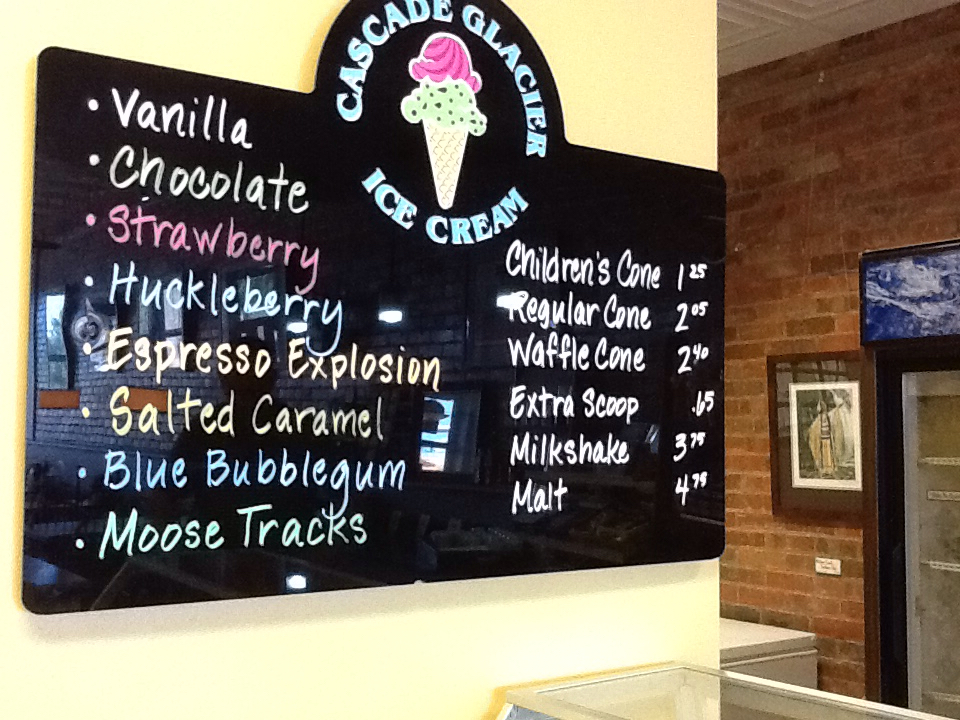 CASCADE GLACIER
ICE CREAM
• Vanilla
• Chocolate
• Strawberry
• Huckleberry
• Espresso Explosion
• Salted Caramel
• Blue Bubblegum
• Moose Tracks
Children's Cone 1 25
Regular Cone 2 05
Waffle Cone 2 40
Extra Scoop .65
Milkshake 3 75
Malt 4 75